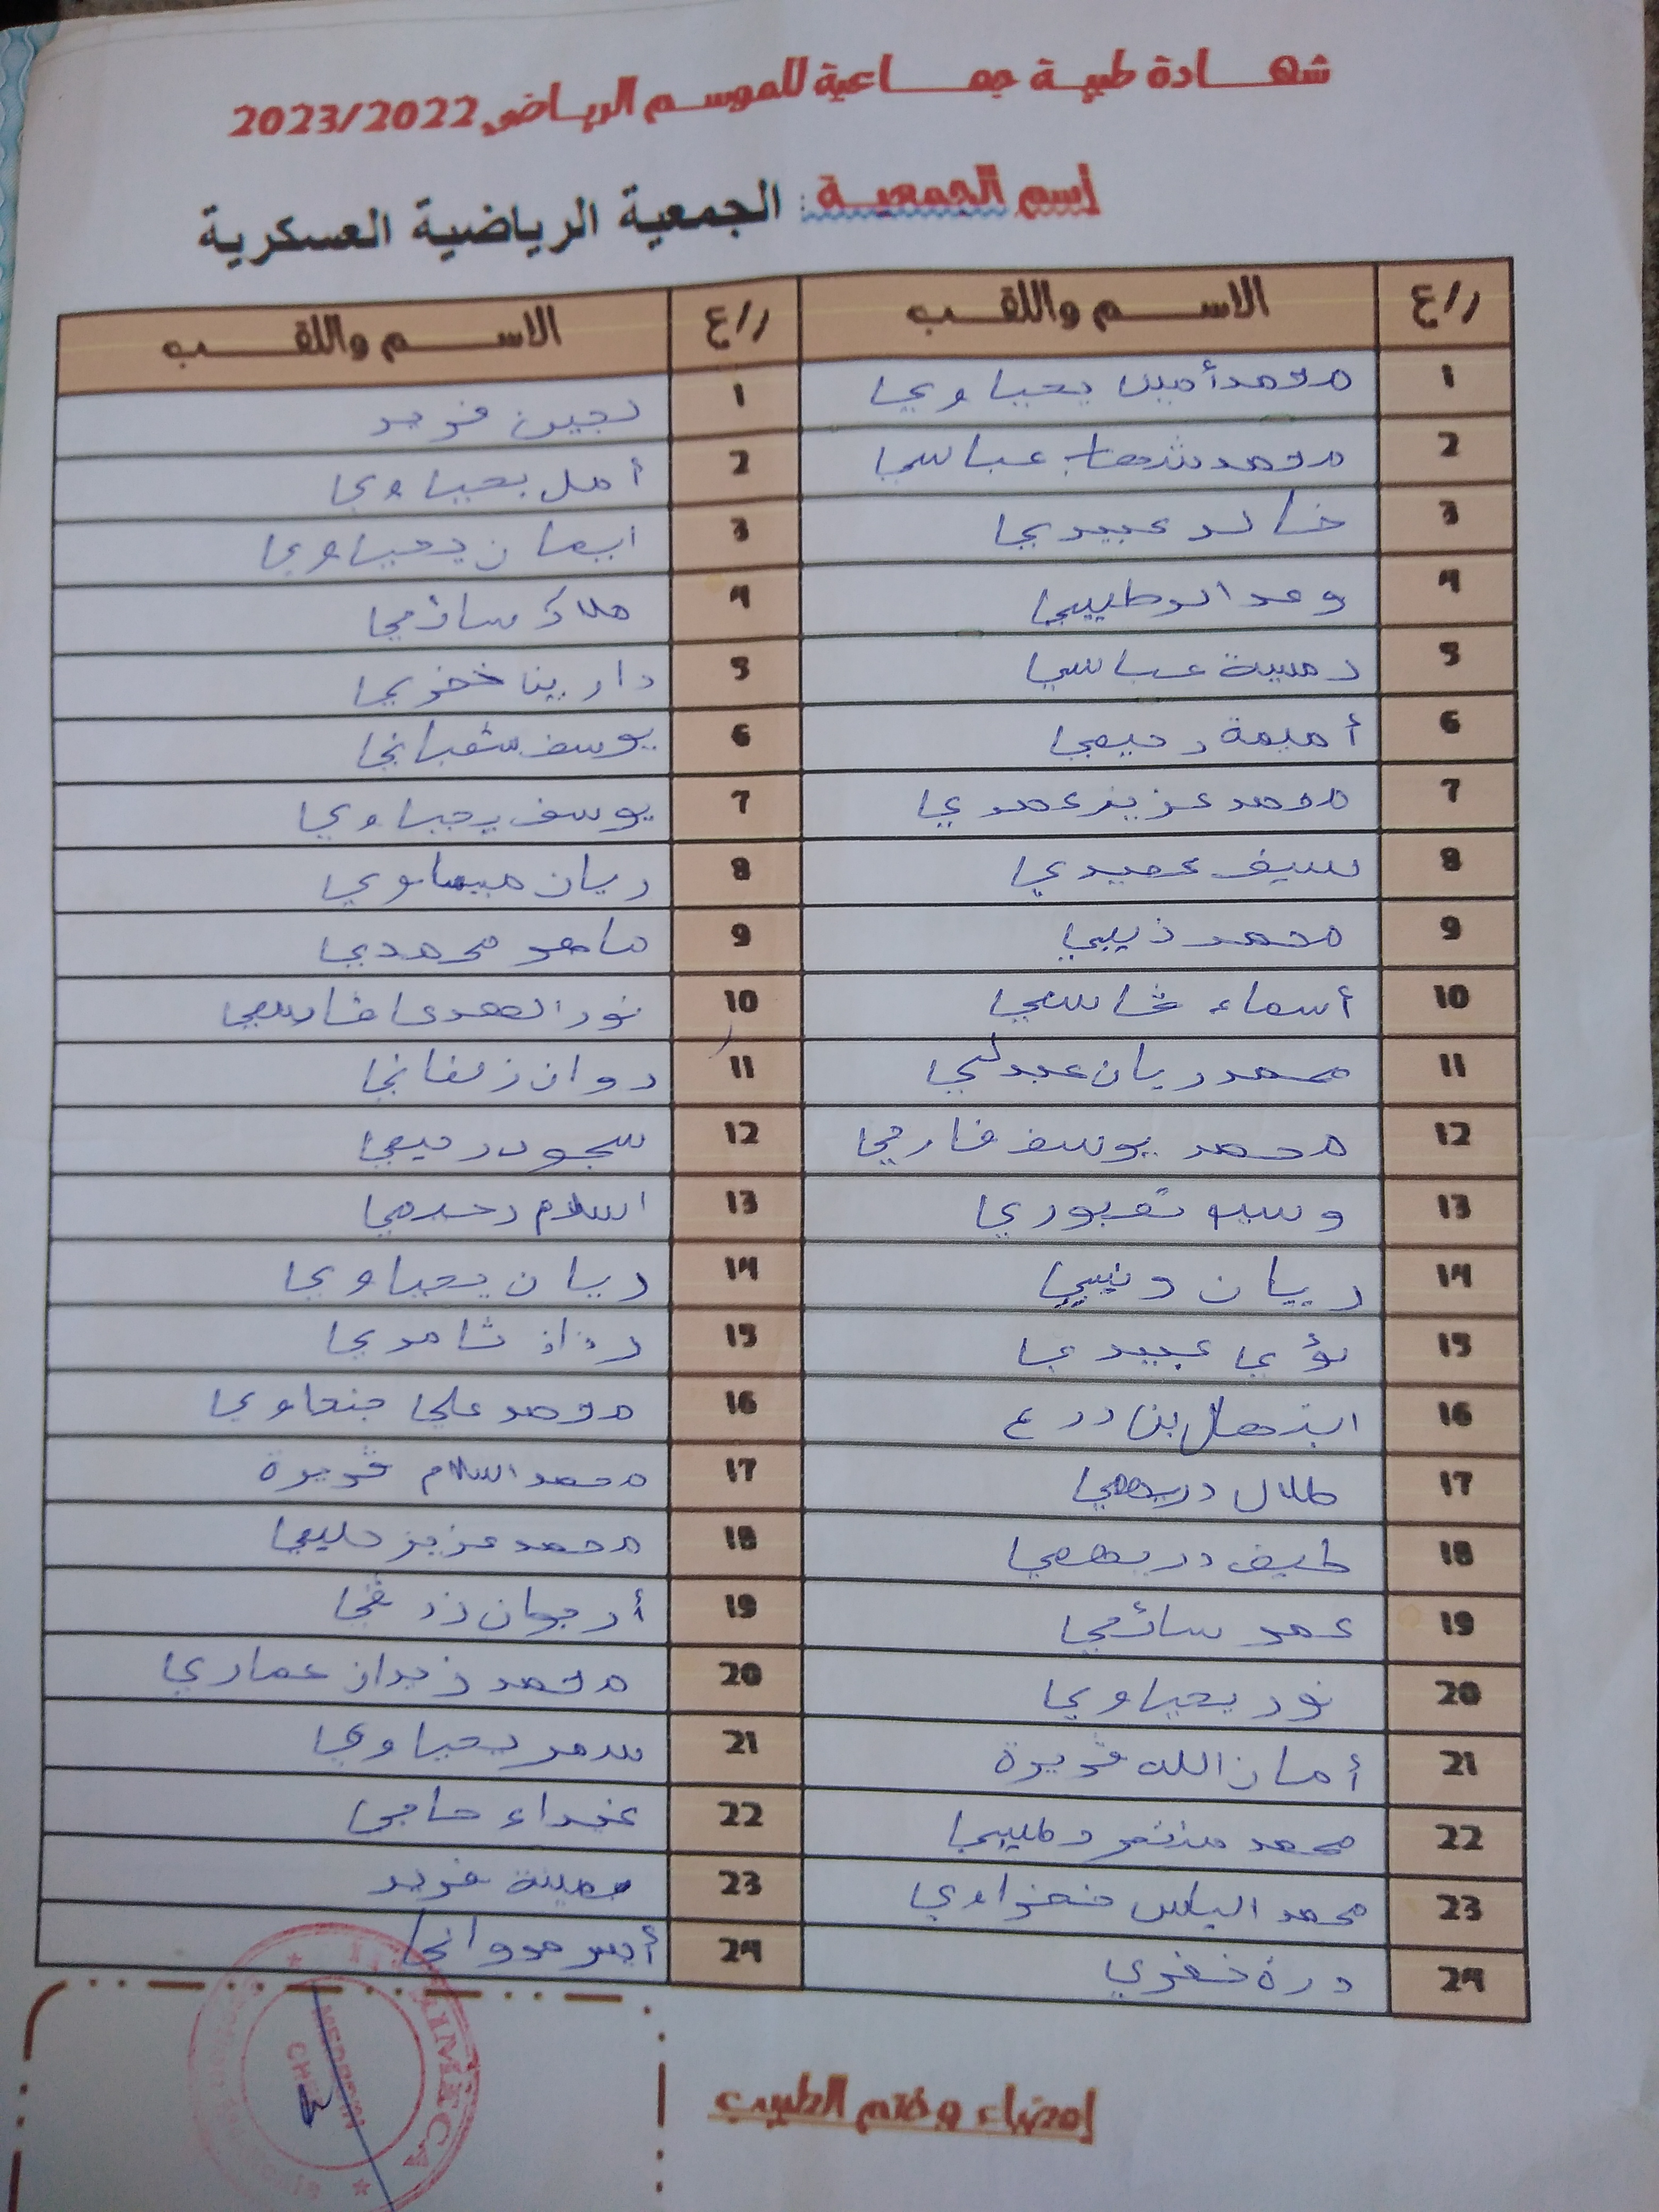 شهادة طبية جماعية للموسم الرياضي 2023/2022
إسم الجمعية: الجمعية الرياضية العسكرية
ر/ع الاسم واللقب ر/ع الاسم واللقب
1 محمد أمين يحياوي 1 لجين فريد
2 محمد شهاب عباسي 2 أمل يحياوي
3 خالد عبيدي 3 ايمان يحياوي
4 وعد الوطيبي 4 ملاك سائمي
5 رمسية عباسي 5 دارين خضري
6 أميمة رحيمي 6 يوسف شعباني
7 محمد عزيز عمدي 7 يوسف يحياوي
8 سيف عميدي 8 ريان ميساوي
9 محمد ذيبي 9 ماهر محمدي
10 أسماء قاسمي 10 نور الهدى قاسمي
11 محمد ريان عبدلي 11 روان زلفاني
12 محمد يوسف فارحي 12 سجود رحيمي
13 قبوري 13 اسلام رحيمي
14 ريان 14 ريان يحياوي
15 لؤي عبيدي 15 رزان ثامري
16 ابتهال بن درع 16 محمد علي جنحاوي
17 طلال دريهمي 17 محمد اسلام قويرة
18 طيف دريهمي 18 محمد عزيز حليمي
19 عمر سائمي 19 أرجوان زرقي
20 نور يحياوي 20 محمد زيدان عماري
21 أمان الله قويرة 21 سمر يحياوي
22 محمد منتصر وطيبي 22 غيداء حاجي
23 محمد الياس نفزاوي 23 يمينة فريد
24 درة خضري 24 أيسر مرواني
إمضاء وختم الطبيب
MEDECIN
CHEF